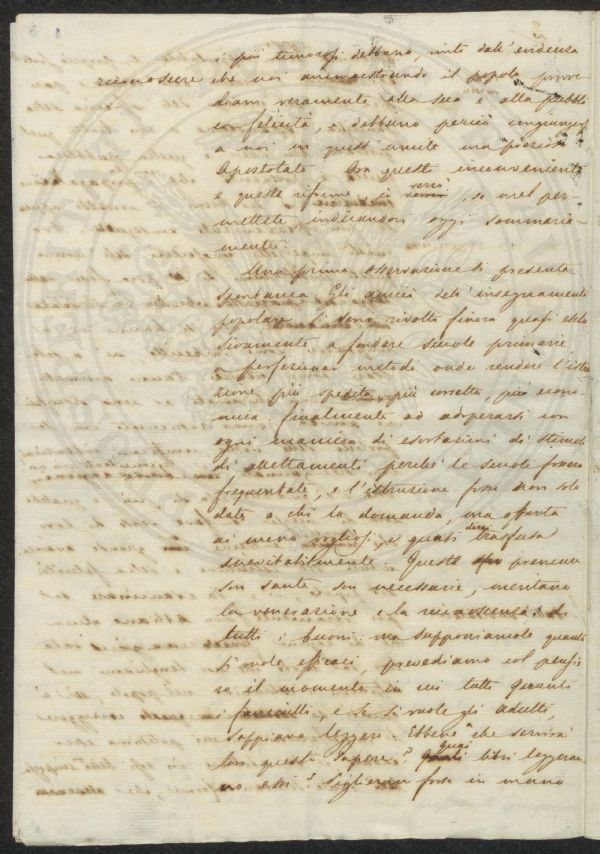 i più timorosi debbano, vinti dall' evidenza
riconoscere che noi ammaestrando il popolo provve-
diam veramente alla sua e alla pubbli
ca felicità, e debbano perciò congiungersi
a noi in quest' umile ma prezioso
Apostolato. Ora questo inconveniente
e queste riforme io verrò, se mel per-
mettete indicandovi oggi sommaria-
mente.
Una prima osservazione si presenta
spontanea. Gli amici dell' insegnamento
popolare si sono rivolti finora quasi esclu
sivamente a fondare scuole primarie
a perfezionar metodi onde rendere l'istru
zione più spedita, più corretta, più econo
mica; finalmente ad adoperarsi con
ogni maniera di esortazioni di stimoli
di allettamenti perchè le scuole fossero
frequentate, e l'istruzione fosse non solo
data a chi la domanda, ma offerta
ai meno vogliosi, e quasi direi trasfusa
inevitabilmente. Queste premure
son sante, son necessarie, meritano
la venerazione e la riconoscenza di
tutti i buoni: ma supponiamole quanto
si vuole efficaci, prevediamo col pensie
ro il momento in cui tutti quanti
i fanciulli, e se si vuole gli adulti,
sappiano leggere. Ebbene che servirà
lor questo sapere? Quai libri leggeran-
no essi? Piglieran forse in mano